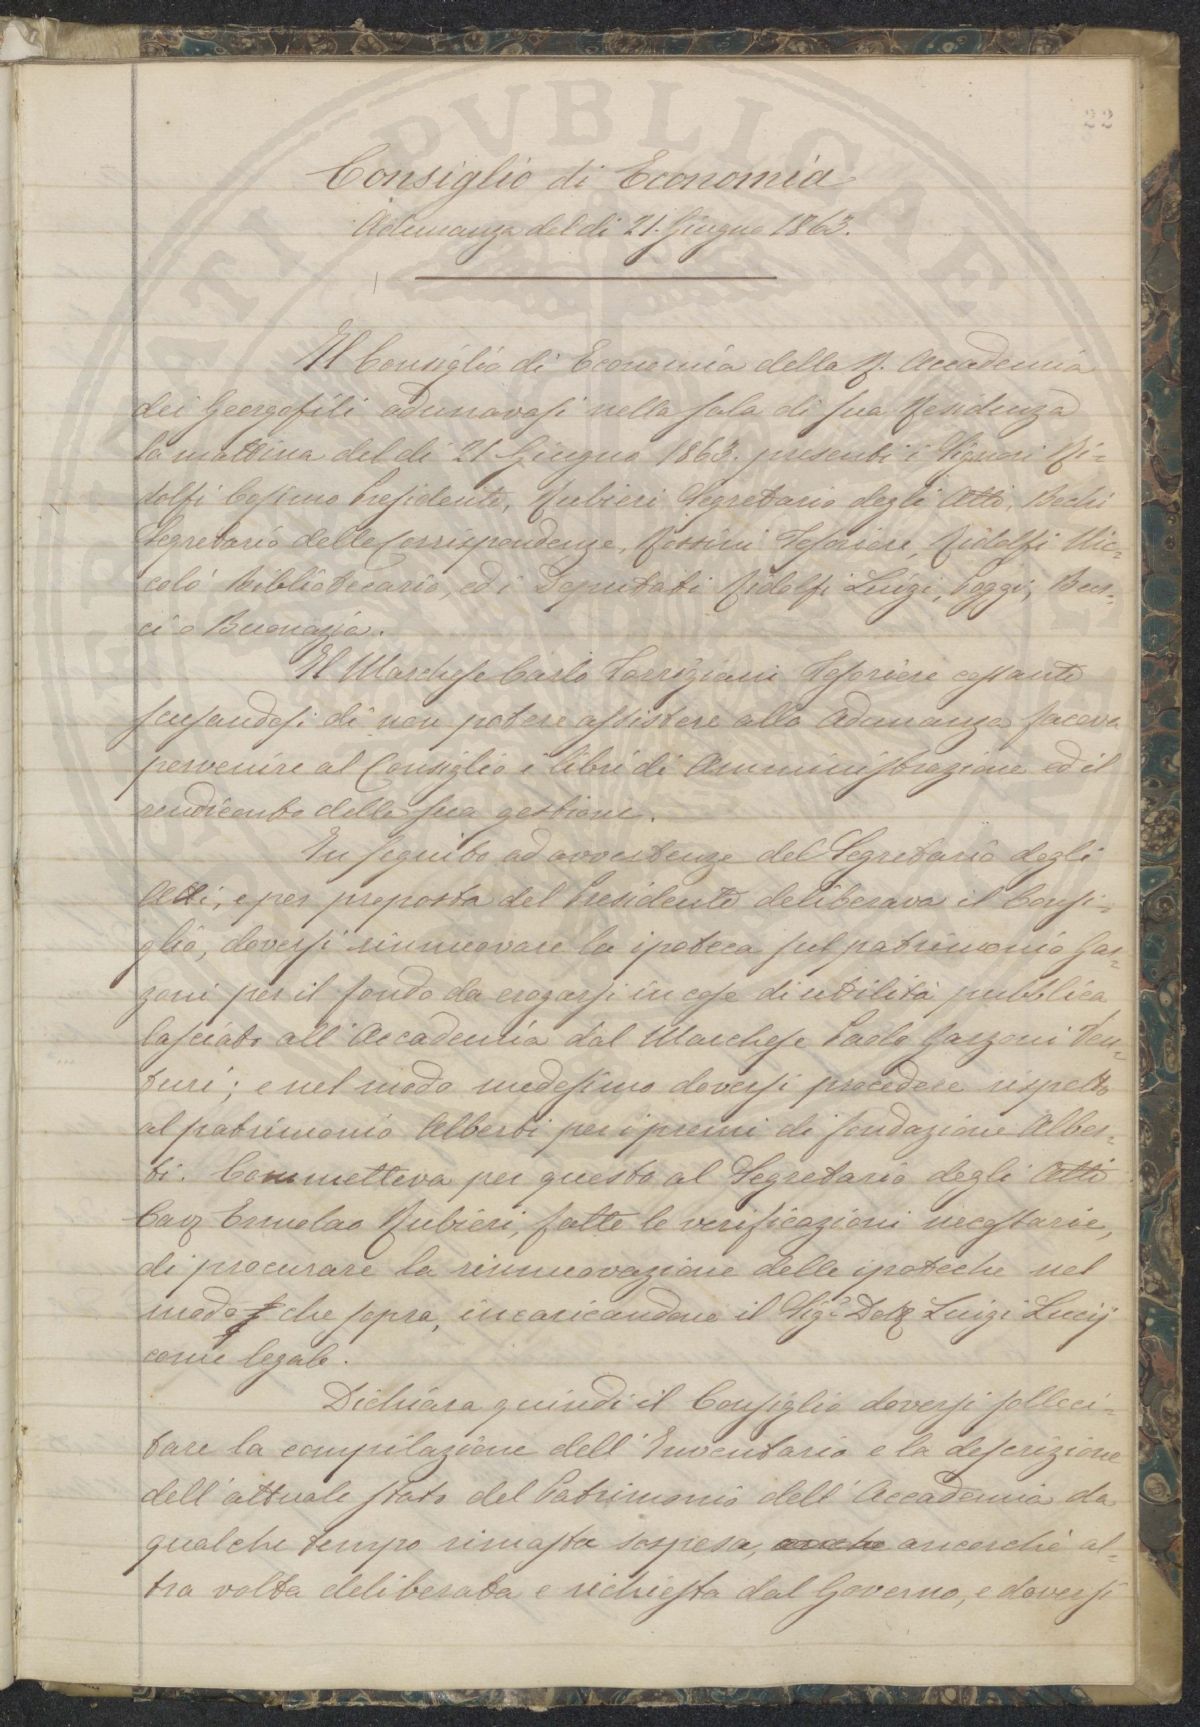 22
Consiglio di Economia
Adunanza del dì 21. Giugno 1863.
Il Consiglio di Economia della R. Accademia
dei Georgofili adunavasi nella sala di sua Residenza
la mattina del dì 21 Giugno 1863. presenti i Signori Ri=
dolfi Cosimo Presidente, Rubieri Segretario degli Atti,
Segretario delle Corrispondenze, Tesoriere, Ridolfi Nic=
colò Bibliotecario, ed i Deputati Ridolfi Luigi, Poggi,
e
Il Marchese Carlo Torrigiani Tesoriere cessante
scusandosi di non potere assistere alla Adunanza faceva
pervenire al Consiglio i libri di Amministrazione ed il
rendiconto della sua gestione.
In seguito ad avvertenze del Segretario degli
Atti, e per proposta del Presidente deliberava il Consi=
glio, doversi rinnuovare la ipoteca sul patrimonio Gar=
zoni per il fondo da erogarsi in cose di utilità pubblica
lasciato all'Accademia dal Marchese Paolo Garzoni Ven=
turi; e nel modo medesimo doversi procedere rispetto
al patrimonio Alberti per i premi di fondazione Alber=
ti. Commetteva per questo al Segretario degli Atti
Cav Ermolao Rubieri, fatte le verificazioni necessarie,
di procurare la rinnuovazione delle ipoteche nel
modo che sopra, incaricandone il Sig.r Luigi Lucij
come legale.
Dichiara quindi il Consiglio doversi solleci=
tare la compilazione dell'Inventario e la descrizione
dell'attuale stato del Patrimonio dell'Accademia da
qualche tempo rimasta sospesa, ancorchè al=
tra volta deliberata e richiesta dal Governo, e doversi